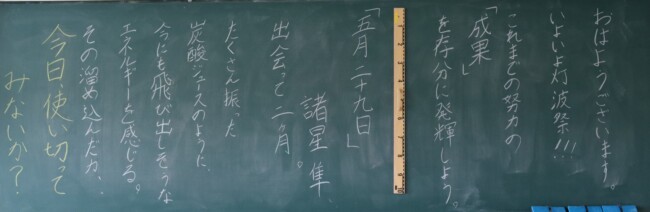 おはようございます。
いよいよ灯波祭!!!
これまでの努力の
「成果」
を存分に発揮しよう。
「五月二十九日」
諸星 隼
出会って二ヵ月。
たくさん振った
炭酸ジュースのように、
今にも飛び出しそうな
エネルギーを感じる。
その溜め込んだ力、
今日、使い切って
みないか?